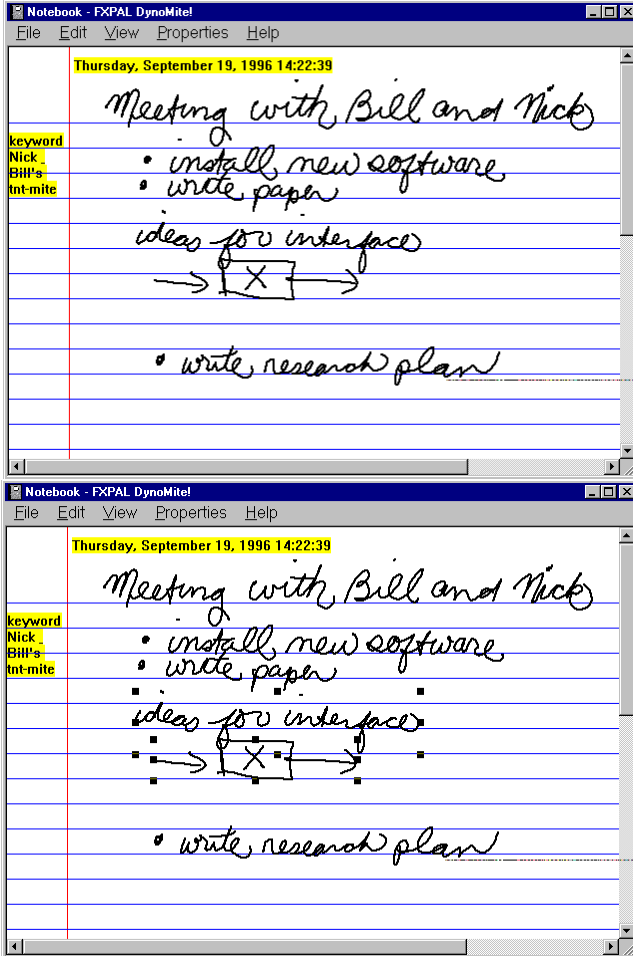 Notebook - FXPAL DynoMite!
File Edit View Properties Help
Thursday, September 19, 1996 14:22:39
Meeting with Bill and Nick
keyword
Nick
Bill's
tnt-mite
• install new software
• write paper
ideas for interface
X
• write research plan
Notebook - FXPAL DynoMite!
File Edit View Properties Help
Thursday, September 19, 1996 14:22:39
Meeting with Bill and Nick
keyword
Nick
Bill's
tnt-mite
• install new software
• write paper
ideas for interface
X
• write research plan